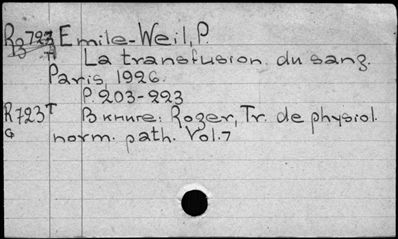 Emile-Weil, P.
La transfusion du sang.
Paris, 1926.
P. 203-223
R723T В книге: Roger, Tr. de physiol.
G norm. path. Vol.7